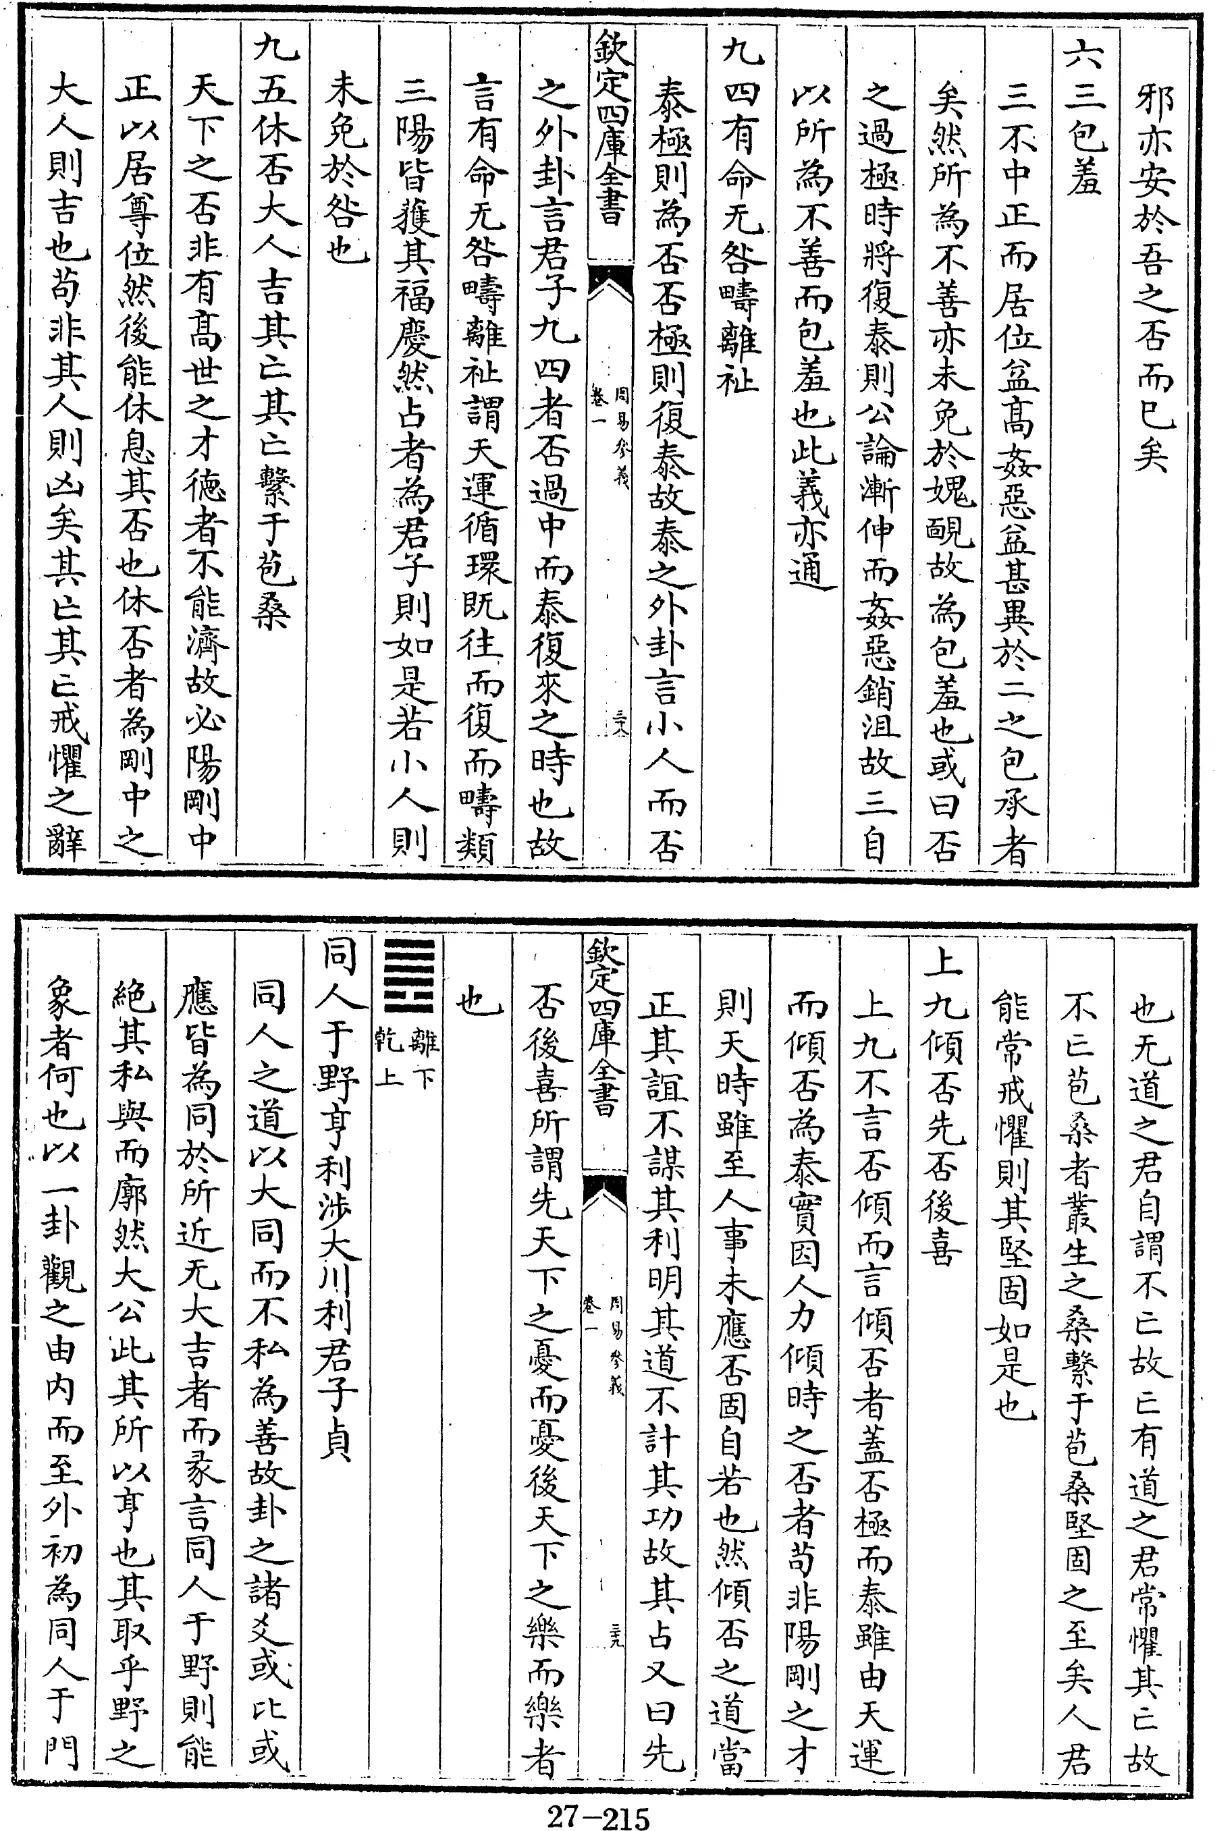 邪亦安於吾之否而已矣
六三包羞
三不中正而居位益高姦惡益甚異於二之包承者
矣然所為不善亦未免於媿靦故為包羞也或曰否
之過極時將復泰則公論漸伸而姦惡銷沮故三自
以所為不善而包羞也此義亦通
九四有命无咎疇離祉
泰極則為否否極則復泰故泰之外卦言小人而否
欽定四庫全書
周易參義
卷一
三八
之外卦言君子九四者否過中而泰復來之時也故
言有命无咎疇離祉謂天運循環既往而復而疇類
三陽皆獲其福慶然占者為君子則如是若小人則
未免於咎也
九五休否大人吉其亡其亡繫于苞桑
天下之否非有髙世之才徳者不能濟故必陽剛中
正以居尊位然後能休息其否也休否者為剛中之
大人則吉也茍非其人則凶矣其亡其亡戒懼之辭
也无道之君自謂不亡故亡有道之君常懼其亡故
不亡苞桑者叢生之桑繫于苞桑堅固之至矣人君
能常戒懼則其堅固如是也
上九傾否先否後喜
上九不言否傾而言傾否者蓋否極而泰雖由天運
而傾否為泰實因人力傾時之否者茍非陽剛之才
則天時雖至人事未應否固自若也然傾否之道當
正其誼不謀其利明其道不計其功故其占又曰先
欽定四庫全書
周易參義
卷一
三九
否後喜所謂先天下之憂而憂後天下之樂而樂者
也
離下
乾上
同人于野亨利涉大川利君子貞
同人之道以大同而不私為善故卦之諸爻或比或
應皆為同於所近无大吉者而彖言同人于野則能
絶其私與而廓然大公此其所以亨也其取乎野之
象者何也以一卦觀之由内而至外初為同人于門
27-215